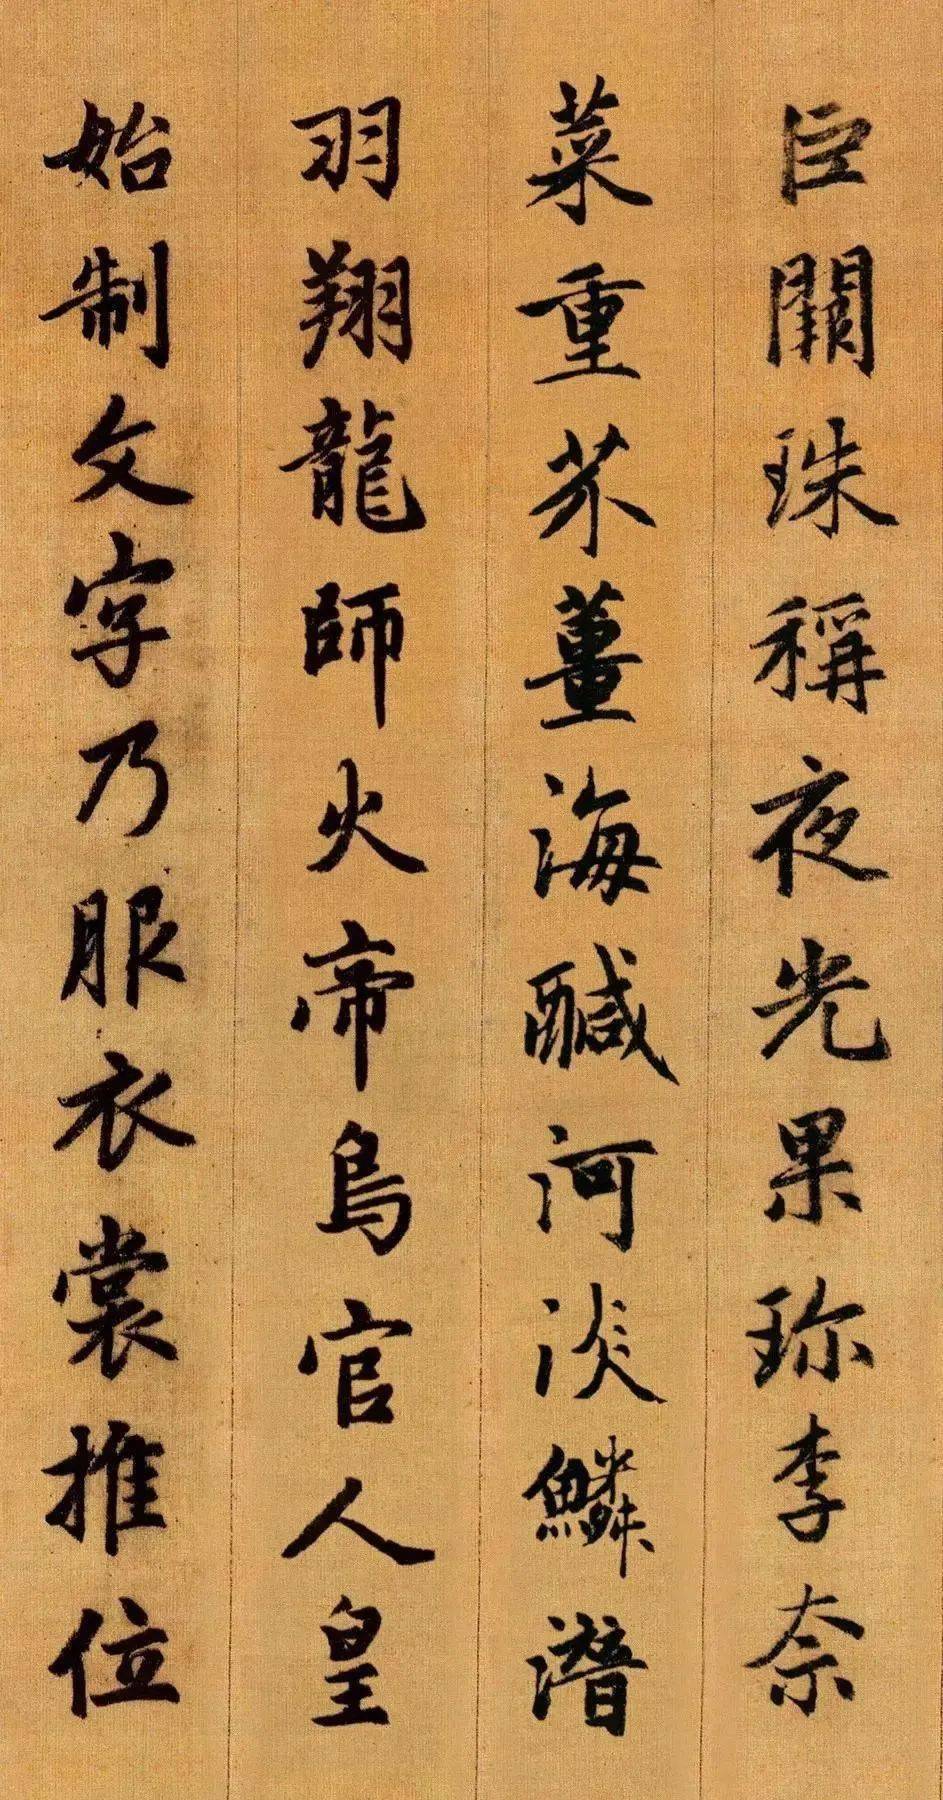 巨闕珠稱夜光果珎李柰
菜重芥薑海鹹河淡鱗潛
羽翔龍師火帝鳥官人皇
始制文字乃服衣裳推位